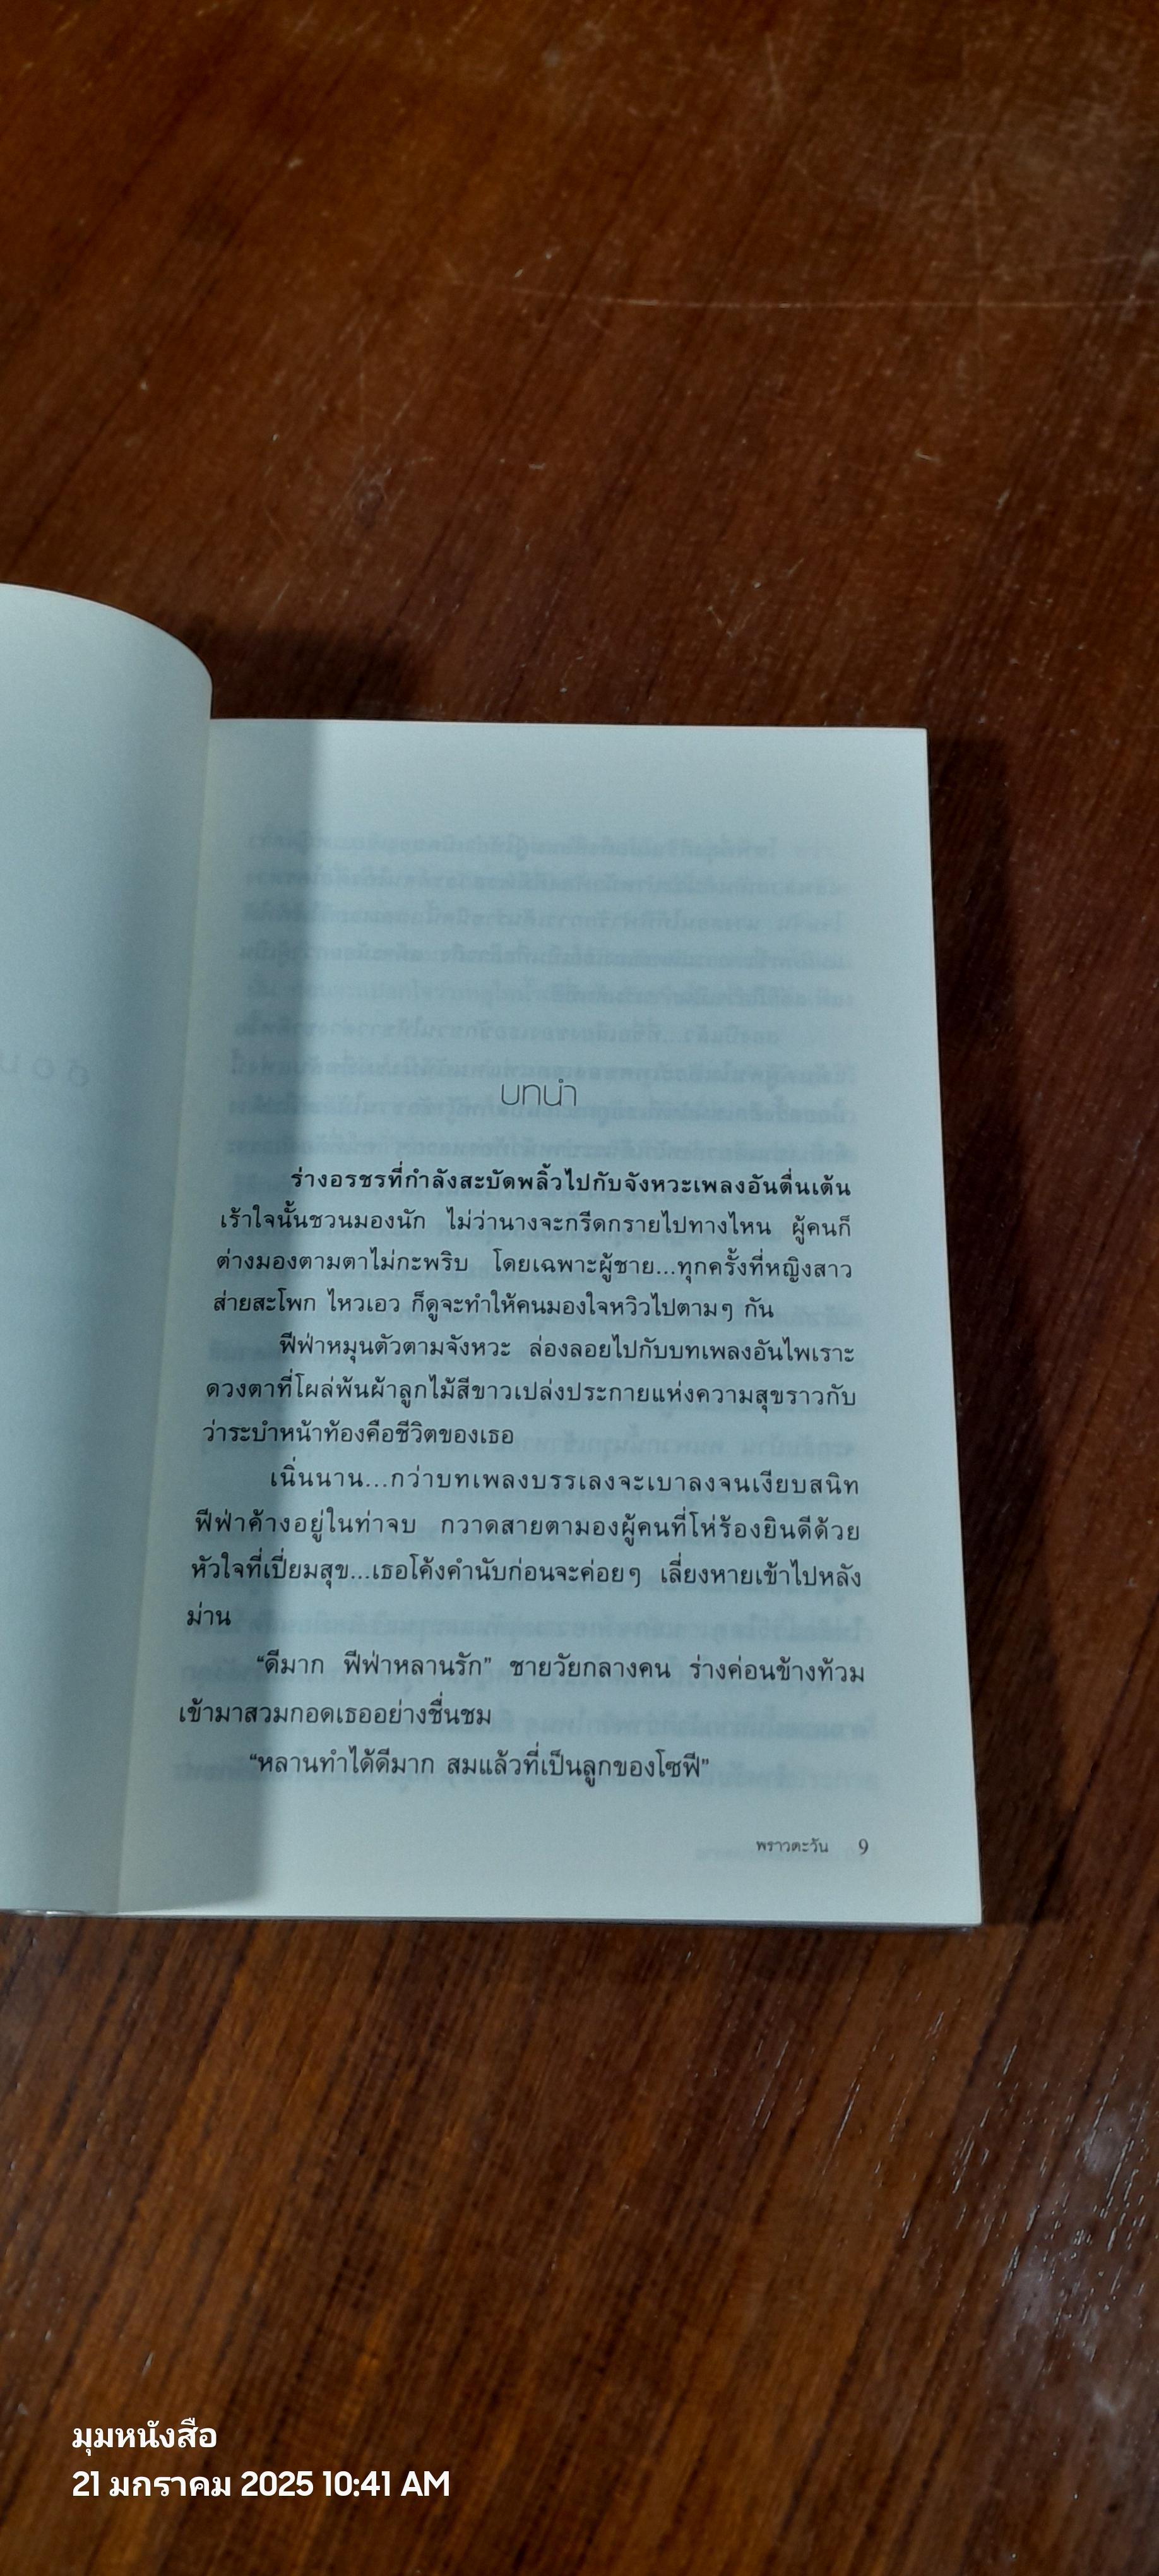 บทนำ
ร่างอรชรที่กำลังสะบัดพลิ้วไปกับจังหวะเพลงอันตื่นเต้น
เร้าใจนั้นชวนมองนัก ไม่ว่านางจะกรีดกรายไปทางไหน ผู้คนก็
ต่างมองตามตาไม่กะพริบ โดยเฉพาะผู้ชาย...ทุกครั้งที่หญิงสาว
ส่ายสะโพก ไหวเอว ก็ดูจะทำให้คนมองใจหวิวไปตามๆ กัน
ฟีฟ่าหมุนตัวตามจังหวะ ล่องลอยไปกับบทเพลงอันไพเราะ
ดวงตาที่โผล่พ้นผ้าลูกไม้สีขาวเปล่งประกายแห่งความสุขราวกับ
ว่าระบำหน้าท้องคือชีวิตของเธอ
เนิ่นนาน...กว่าบทเพลงบรรเลงจะเบาลงจนเงียบสนิท
ฟีฟ่าค้างอยู่ในท่าจบ กวาดสายตามองผู้คนที่โห่ร้องยินดีด้วย
หัวใจที่เปี่ยมสุข...เธอโค้งคำนับก่อนจะค่อยๆ เลี่ยงหายเข้าไปหลัง
ม่าน
“ดีมาก ฟีฟ่าหลานรัก” ชายวัยกลางคน ร่างค่อนข้างท้วม
เข้ามาสวมกอดเธออย่างชื่นชม
“หลานทำได้ดีมาก สมแล้วที่เป็นลูกของโซฟี”
พราวตะวัน 9
มุมหนังสือ
21 มกราคม 2025 10:41 AM